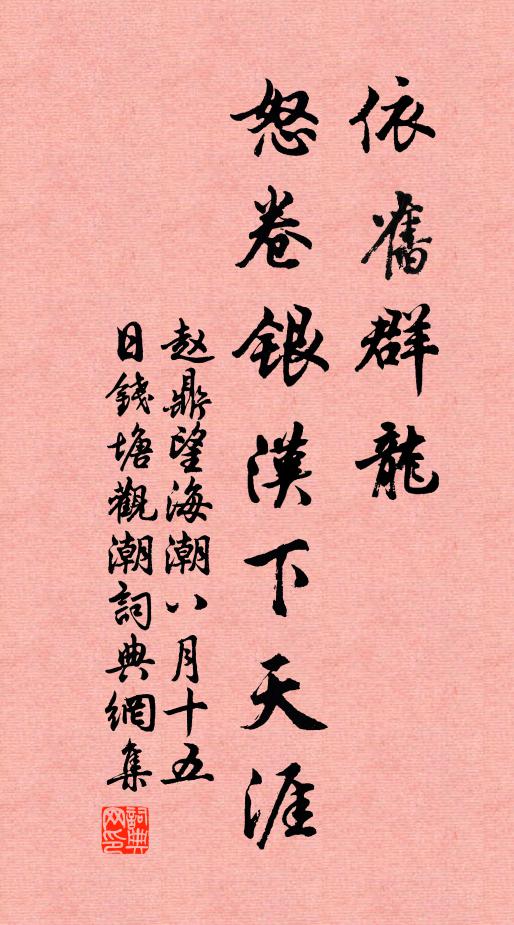 依舊群龍
怒卷銀漢下天涯
赵鼎望海潮八月十五
日錢塘觀潮詞典網集
詞典
网印